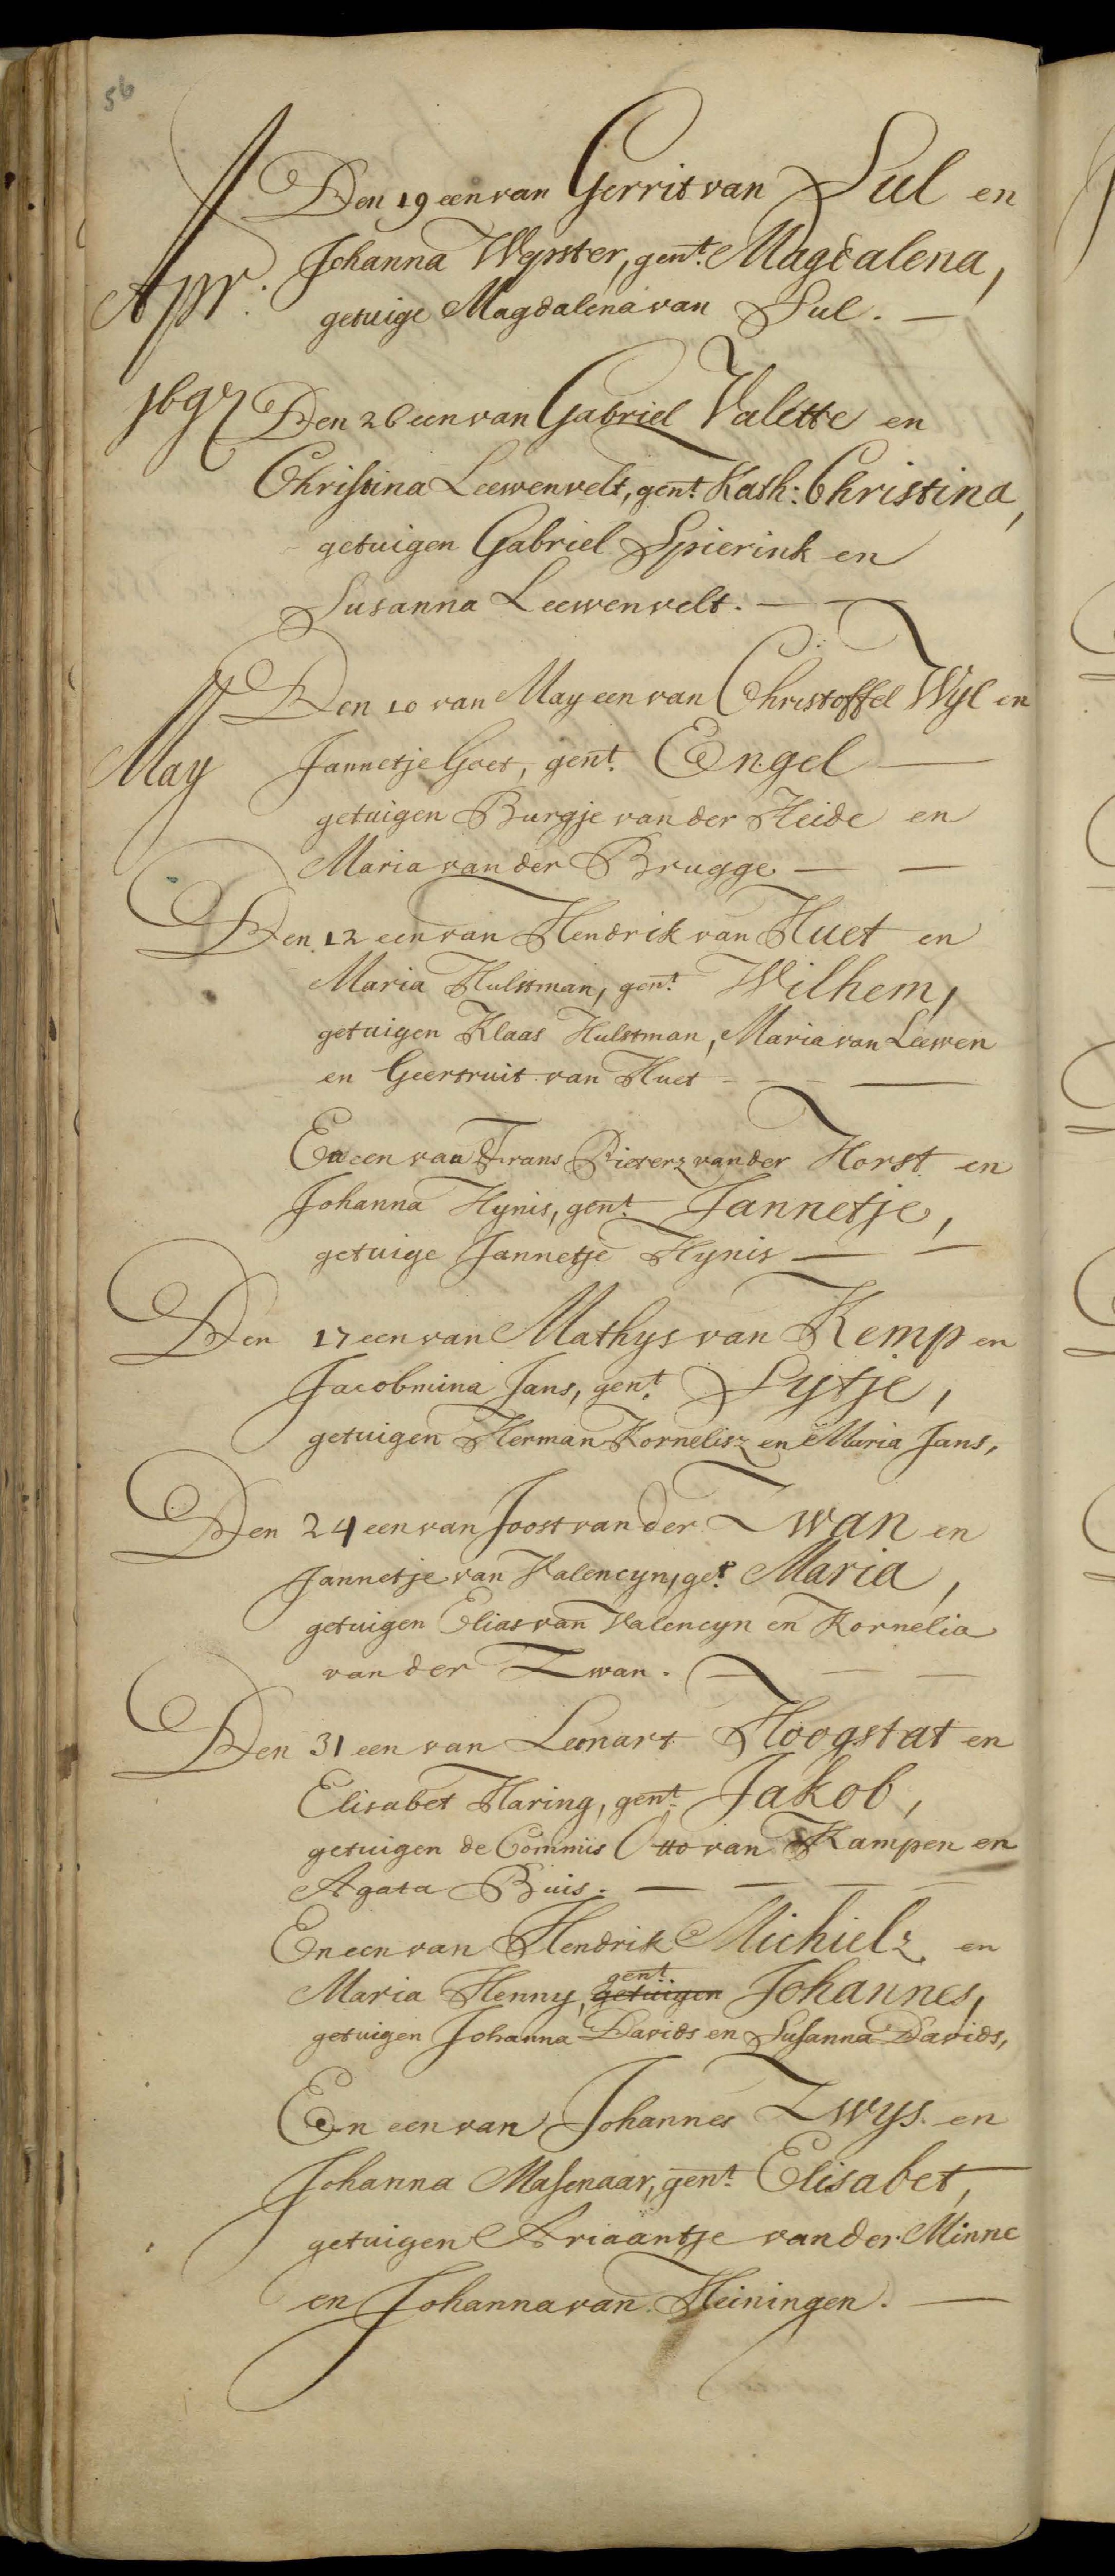 56
Den 19 een van Gerrit van Sul en
Apr. Johanna Wyster, gent. Magdalena,
getuige Magdalena van Sul. —
1697 Den 26 een van Gabriel Valette en
Christina Leewenvelt, gent. Kath: Christina,
getuigen Gabriel Spierink en
Susanna Leewenvelt. — —
Den 10 van May een van Christoffel Wyl en
May Jannetje Goet, gent. Engel —
getuigen Burgje van der Heide en
Maria van der Brugge — —
Den 12 een van Hendrik van Huet en
Maria Hulstman, gent. Wilhem,
getuigen Klaas Hulstman, Maria van Leewen
en Geertruit van Huet — — —
En een van Frans Pieterz van der Horst en
Johanna Hynis, gent. Jannetje,
getuige Jannetje Hynis — —
Den 17 een van Mathys van Kemp en
Jacobmina Jans, gent. Sytje,
getuigen Herman Kornelisz en Maria Jans,
Den 24 een van Joost van der Zwan en
Jannetje van Valencyn, get. Maria,
getuigen Elias van Valencyn en Kornelia
van der Zwan. — — —
Den 31 een van Leonart Hoogstat en
Elisabet Haring, gent. Jakob,
getuigen de Commis Otto van Kampen en
Agata Buis. — — — —
En een van Hendrik Michielz en
Maria Henny, getuigen gent. Johannes,
getuigen Johanna Davids en Susanna Davids,
En een van Johannes Zwys en
Johanna Masenaar, gent. Elisabet,
getuigen Ariaantje van der Minne
en Johanna van Heiningen. —